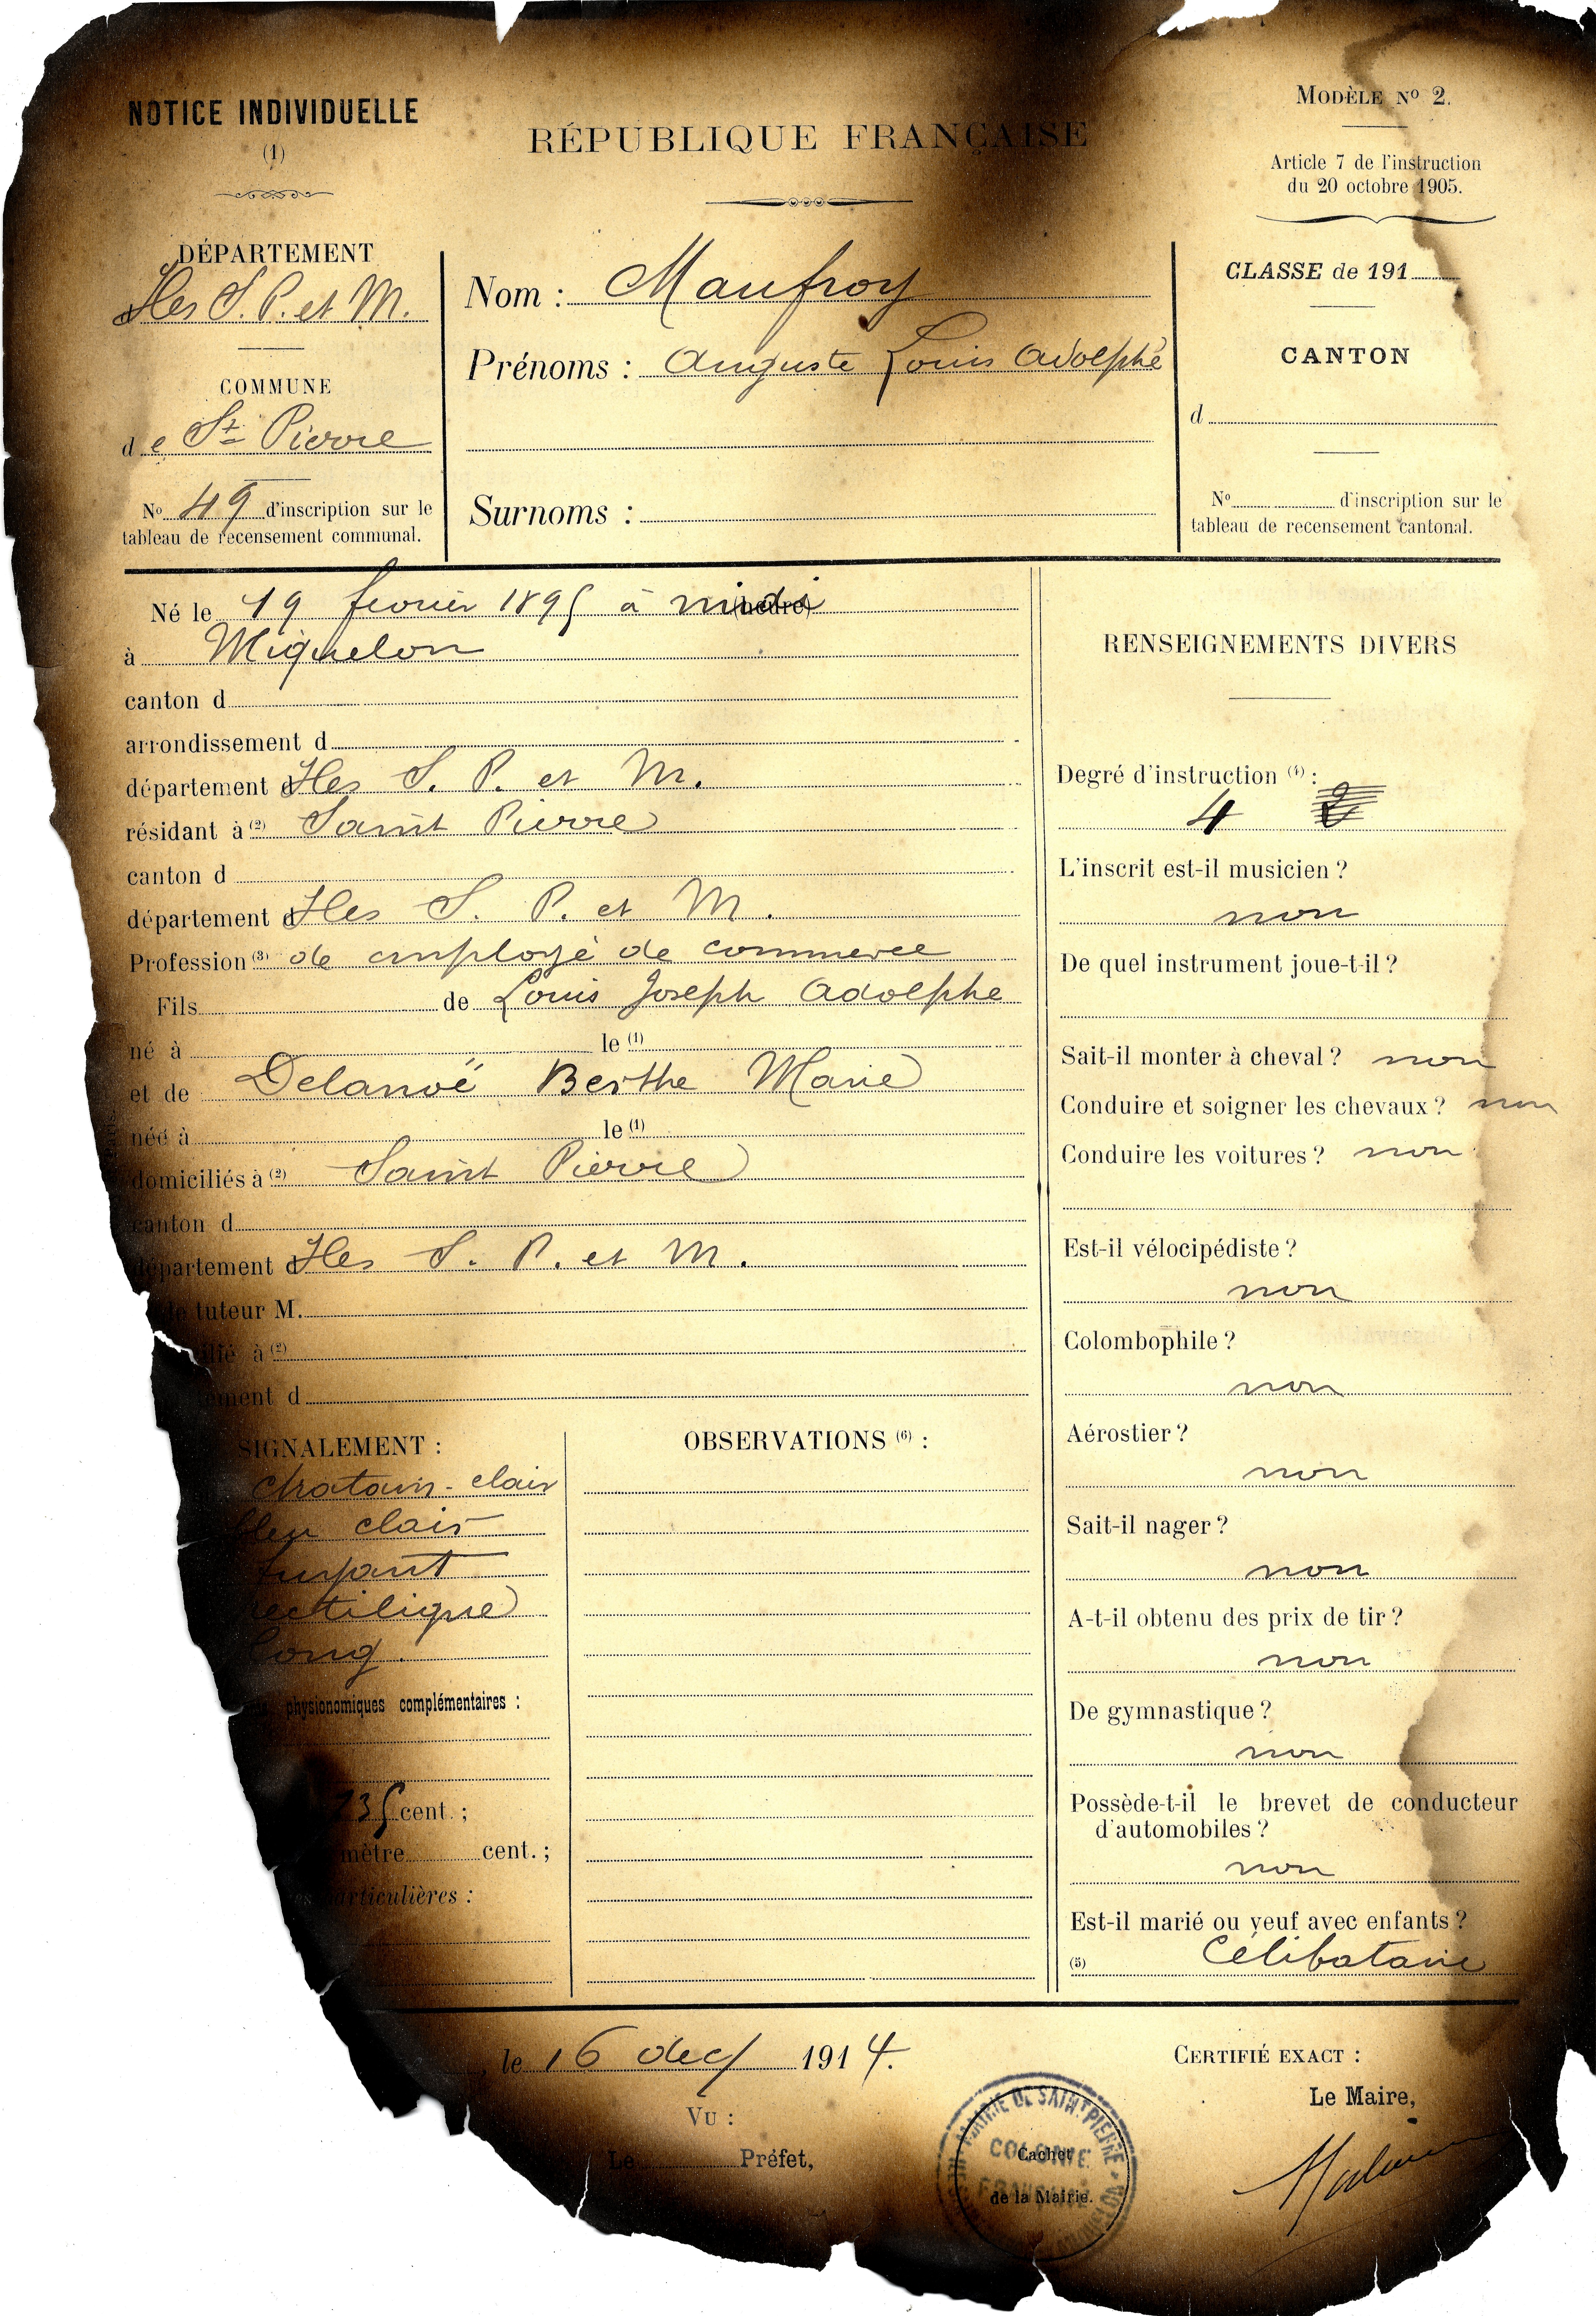 NOTICE INDIVIDUELLE
(1)
RÉPUBLIQUE FRANÇAISE
MODÈLE No 2.
Article 7 de l'instruction
du 20 octobre 1905.
DÉPARTEMENT
Iles S. P. et M.
COMMUNE
de St Pierre
No 49 d'inscription sur le
tableau de recensement communal.
Nom : Maufroy
Prénoms : Auguste Louis Adolphe
Surnoms :
CLASSE de 191
CANTON
d
No d'inscription sur le
tableau de recensement cantonal.
Né le 19 fevrier 1895 à midi (heure)
à Miquelon
canton d
arrondissement d
département d Iles S. P. et M.
résidant à (2) Saint Pierre
canton d
département d Iles S. P. et M.
Profession (3) de employé de commerce
Fils de Louis Joseph Adolphe
né à le (1)
et de Delanoë Berthe Marie
née à le (1)
domiciliés à (2) Saint Pierre
canton d
département d Iles S. P. et M.
tuteur M.
à (2)
d
SIGNALEMENT :
chatain-clair
bleu clair
fuyant
rectiligne
long.
physionomiques complémentaires :
735 cent. ;
mètre cent. ;
particulières :
OBSERVATIONS (6) :
RENSEIGNEMENTS DIVERS
Degré d'instruction (4) :
4 2
L'inscrit est-il musicien ?
non
De quel instrument joue-t-il ?
Sait-il monter à cheval ? non
Conduire et soigner les chevaux ? non
Conduire les voitures ? non
Est-il vélocipédiste ?
non
Colombophile ?
non
Aérostier ?
non
Sait-il nager ?
non
A-t-il obtenu des prix de tir ?
non
De gymnastique ?
non
Possède-t-il le brevet de conducteur
d'automobiles ?
non
Est-il marié ou veuf avec enfants ?
(5) Célibataire
, le 16 dec/ 1914.
VU :
Le Préfet,
MAIRIE DE SAINT PIERRE
COLONIE
FRANÇAISE
Cachet
de la Mairie.
CERTIFIÉ EXACT :
Le Maire,